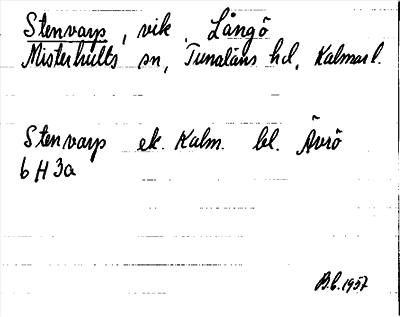 Stenvarp, vik. Långö
Misterhults sn, Tunaläns hd, Kalmar l.
Stenvarp ek. Kalm. bl. Ävrö
6 H 3a
B.b. 1957